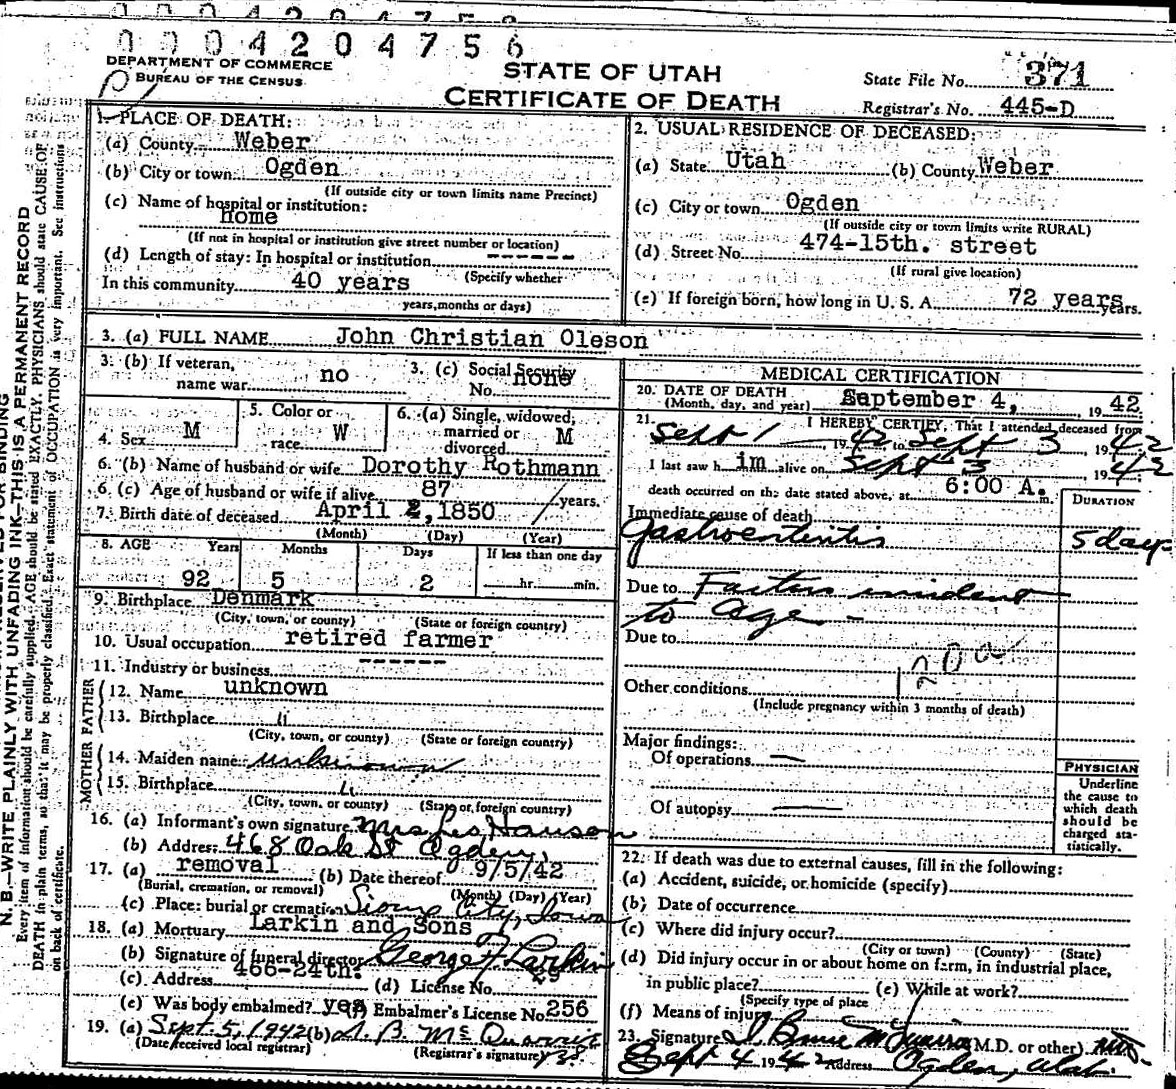 0004204756
DEPARTMENT OF COMMERCE
BUREAU OF THE CENSUS
STATE OF UTAH
CERTIFICATE OF DEATH
State File No. 371
Registrar's No. 445-D
1. PLACE OF DEATH:
(a) County Weber
(b) City or town Ogden
(If outside city or town limits name Precinct)
(c) Name of hospital or institution:
home
(If not in hospital or institution give street number or location)
(d) Length of stay: In hospital or institution -------
(Specify whether
In this community 40 years
years, months or days)
2. USUAL RESIDENCE OF DECEASED:
(a) State Utah (b) County Weber
(c) City or town Ogden
(If outside city or town limits write RURAL)
(d) Street No. 474-15th. street
(If rural give location)
(e) If foreign born, how long in U. S. A. 72 years years.
3. (a) FULL NAME John Christian Oleson
3. (b) If veteran, name war no
3. (c) Social Security No. none
4. Sex M
5. Color or race W
6. (a) Single, widowed, married or divorced M
6. (b) Name of husband or wife Dorothy Rothmann
6. (c) Age of husband or wife if alive 87 years.
7. Birth date of deceased April 2, 1850
(Month) (Day) (Year)
8. AGE Years Months Days If less than one day
92 5 2 hr. min.
9. Birthplace Denmark
(City, town, or county) (State or foreign country)
10. Usual occupation retired farmer
11. Industry or business ------
FATHER
12. Name unknown
13. Birthplace "
(City, town, or county) (State or foreign country)
MOTHER
14. Maiden name unknown
15. Birthplace "
(City, town, or county) (State or foreign country)
16. (a) Informant's own signature Mrs Les Hanson
(b) Address 468 Oak St Ogden,
17. (a) removal (b) Date thereof 9/5/42
(Burial, cremation, or removal) (Month) (Day) (Year)
(c) Place: burial or cremation Sioux City, Iowa
18. (a) Mortuary Larkin and Sons
(b) Signature of funeral director George F Larkin
(c) Address 466-24th. (d) License No. 29
(e) Was body embalmed? yes (f) Embalmer's License No. 256
19. (a) Sept. 5, 1942 (b)
(Date received local registrar) (Registrar's signature)
MEDICAL CERTIFICATION
20. DATE OF DEATH
(Month, day, and year) September 4, 1942
21. I HEREBY CERTIFY, That I attended deceased from
Sept 1 1942 to Sept 3, 1942
I last saw him alive on Sept 3 1942
death occurred on the date stated above, at 6:00 A. m.
DURATION
Immediate cause of death
Gastroenteritis 5 days
Due to Factors incident
to age -
Due to
120a
Other conditions
(Include pregnancy within 3 months of death)
Major findings:
Of operations —
Of autopsy —
PHYSICIAN
Underline
the cause to
which death
should be
charged sta-
tistically.
22. If death was due to external causes, fill in the following:
(a) Accident, suicide, or homicide (specify)
(b) Date of occurrence
(c) Where did injury occur?
(City or town) (County) (State)
(d) Did injury occur in or about home on farm, in industrial place,
in public place? (e) While at work?
(Specify type of place
(f) Means of injury
23. Signature (M.D. or other) MD.
Sept 4 1942 Address Ogden, Utah.
N. B.—WRITE PLAINLY WITH UNFADING INK—THIS IS A PERMANENT RECORD
Every item of information should be carefully supplied. AGE should be stated EXACTLY. PHYSICIANS should state CAUSE OF
DEATH in plain terms, so that it may be properly classified. Exact statement of OCCUPATION is very important. See instructions
on back of certificate.